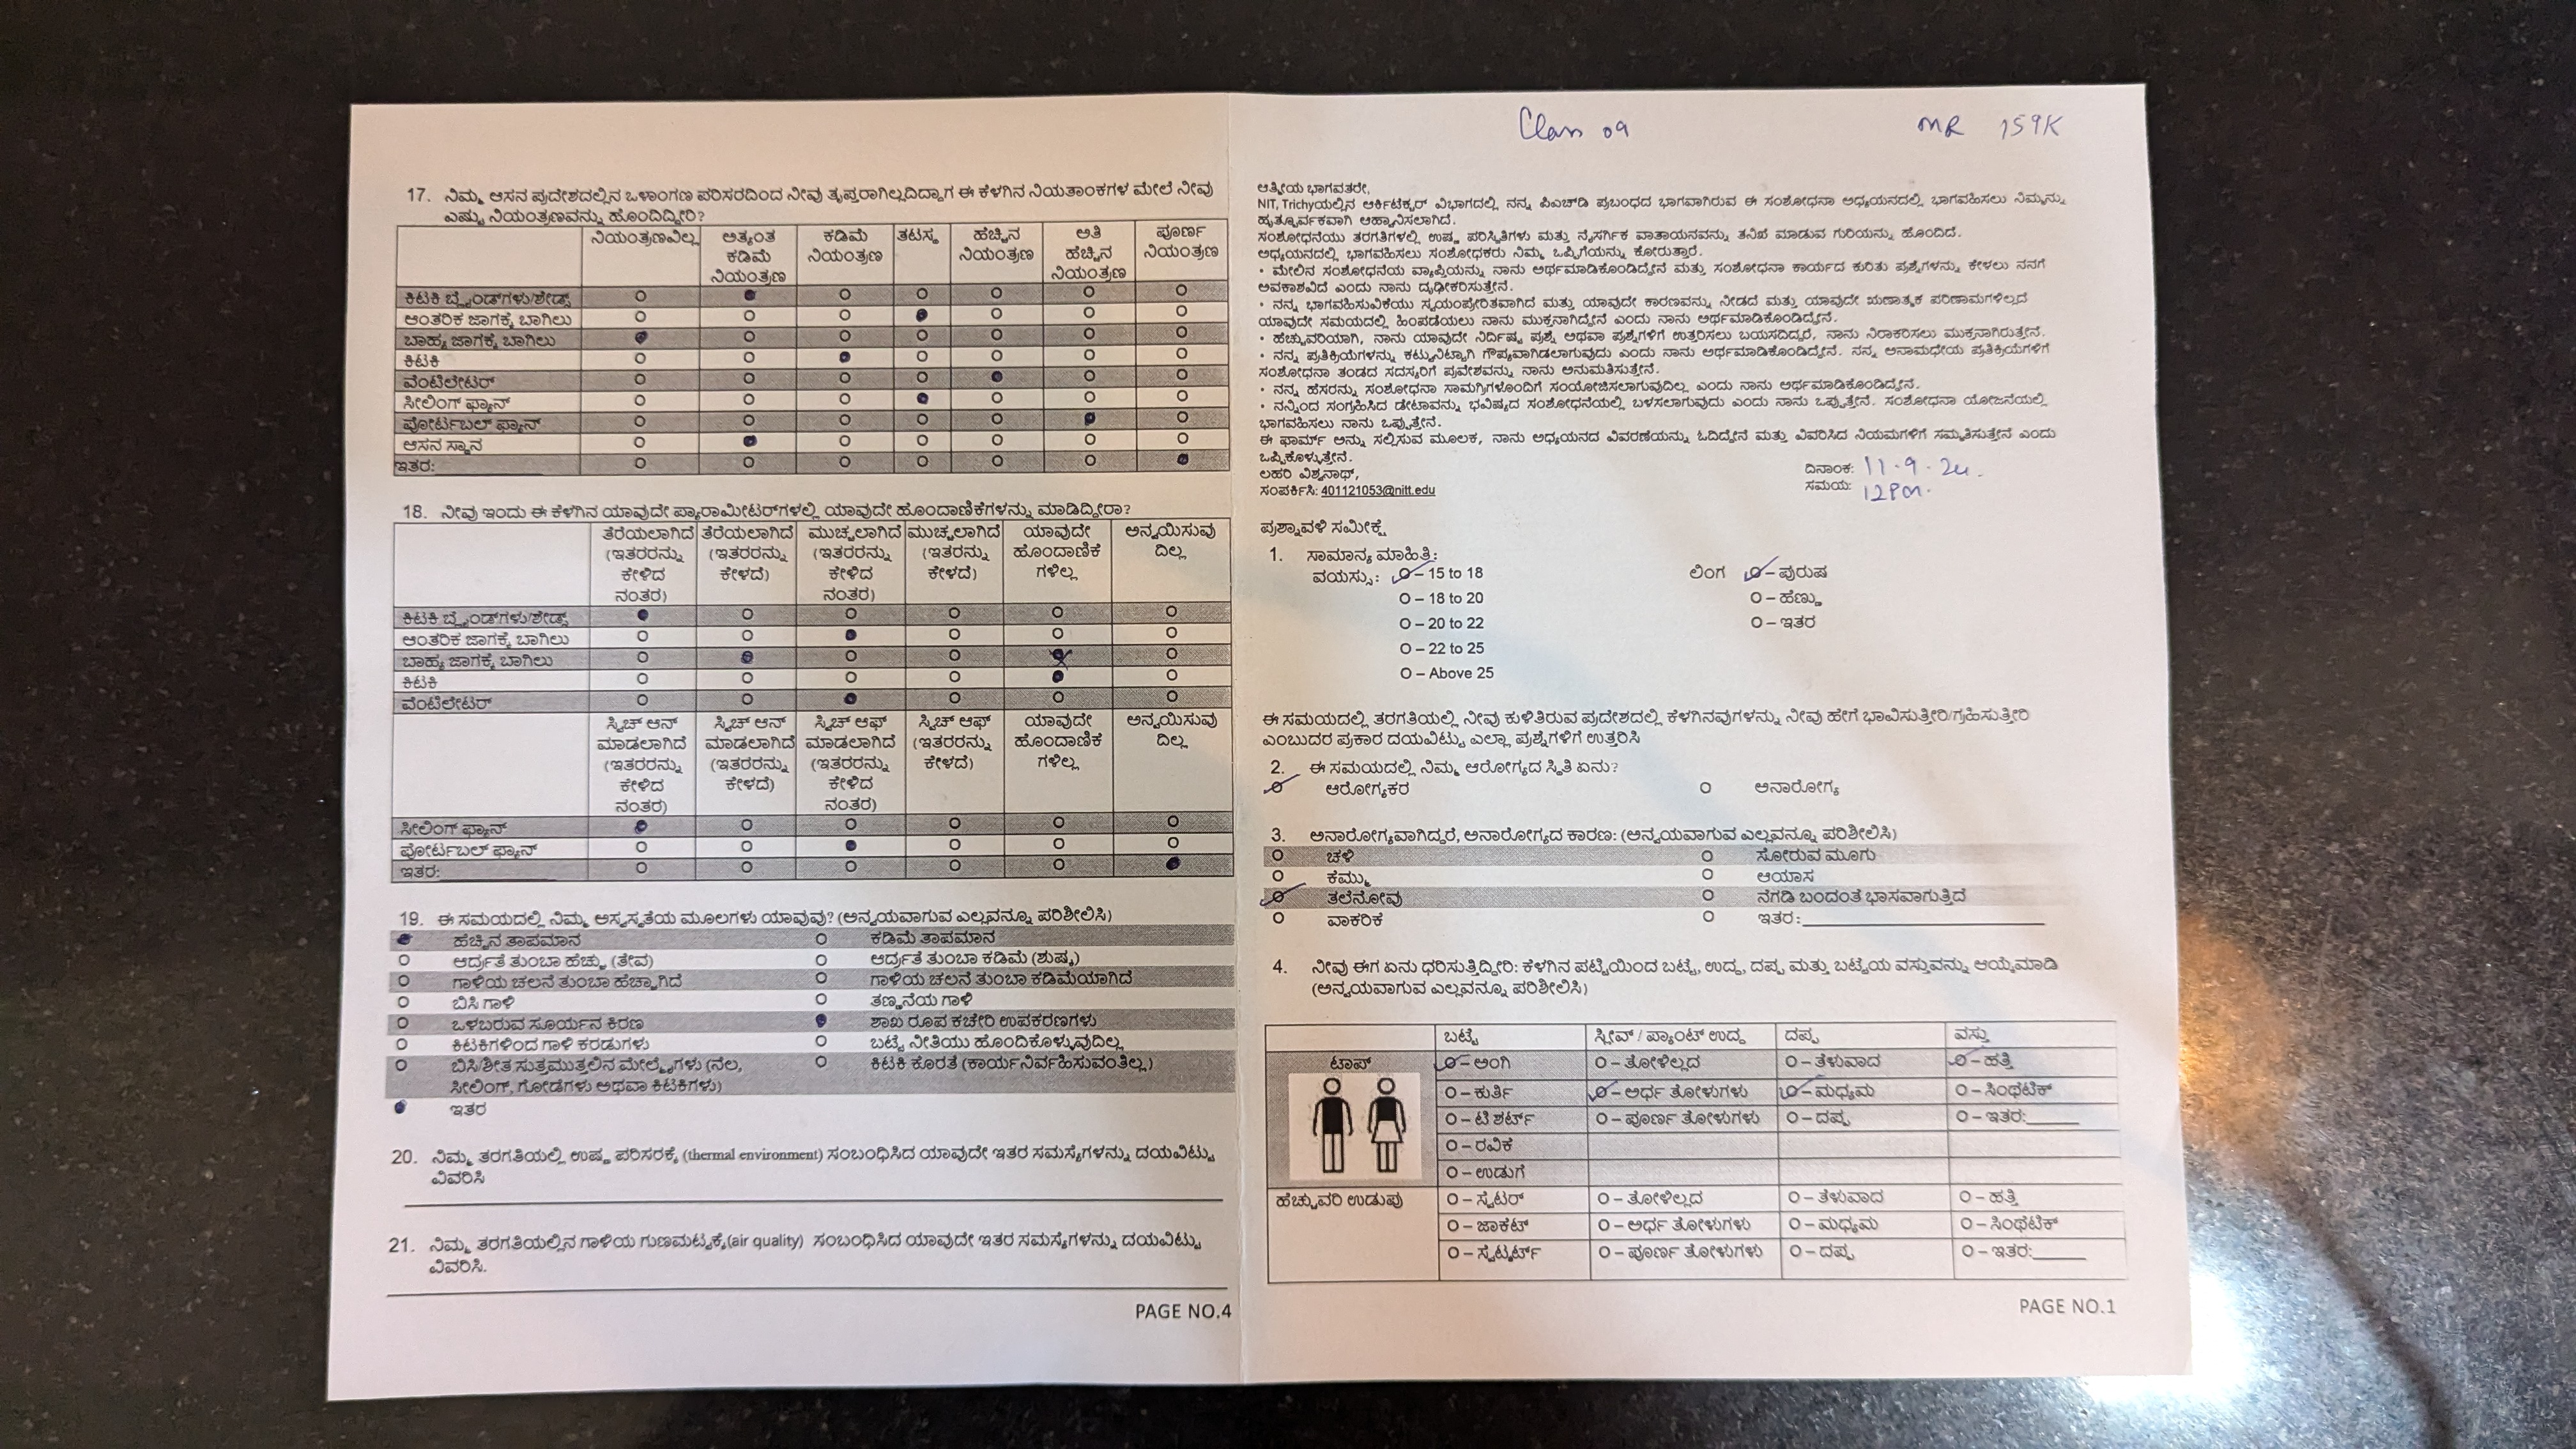 17. ನಿಮ್ಮ ಆಸನ ಪ್ರದೇಶದಲ್ಲಿನ ಒಳಾಂಗಣ ಪರಿಸರದಿಂದ ನೀವು ತೃಪ್ತರಾಗಿಲ್ಲದಿದ್ದಾಗ ಈ ಕೆಳಗಿನ ನಿಯತಾಂಕಗಳ ಮೇಲೆ ನೀವು
ಎಷ್ಟು ನಿಯಂತ್ರಣವನ್ನು ಹೊಂದಿದ್ದೀರಿ?
ನಿಯಂತ್ರಣವಿಲ್ಲ ಅತ್ಯಂತ ಕಡಿಮೆ ನಿಯಂತ್ರಣ ಕಡಿಮೆ ನಿಯಂತ್ರಣ ತಟಸ್ಥ ಹೆಚ್ಚಿನ ನಿಯಂತ್ರಣ ಅತಿ ಹೆಚ್ಚಿನ ನಿಯಂತ್ರಣ ಪೂರ್ಣ ನಿಯಂತ್ರಣ
ಕಿಟಕಿ ಬ್ಲೈಂಡ್‌ಗಳು/ಶೇಡ್ಸ್
ಆಂತರಿಕ ಜಾಗಕ್ಕೆ ಬಾಗಿಲು
ಬಾಹ್ಯ ಜಾಗಕ್ಕೆ ಬಾಗಿಲು
ಕಿಟಕಿ
ವೆಂಟಿಲೇಟರ್
ಸೀಲಿಂಗ್ ಫ್ಯಾನ್
ಪೋರ್ಟಬಲ್ ಫ್ಯಾನ್
ಆಸನ ಸ್ಥಾನ
ಇತರ:
18. ನೀವು ಇಂದು ಈ ಕೆಳಗಿನ ಯಾವುದೇ ಪ್ಯಾರಾಮೀಟರ್‌ಗಳಲ್ಲಿ ಯಾವುದೇ ಹೊಂದಾಣಿಕೆಗಳನ್ನು ಮಾಡಿದ್ದೀರಾ?
ತೆರೆಯಲಾಗಿದೆ (ಇತರರನ್ನು ಕೇಳಿದ ನಂತರ) ತೆರೆಯಲಾಗಿದೆ (ಇತರರನ್ನು ಕೇಳದೆ) ಮುಚ್ಚಲಾಗಿದೆ (ಇತರರನ್ನು ಕೇಳಿದ ನಂತರ) ಮುಚ್ಚಲಾಗಿದೆ (ಇತರರನ್ನು ಕೇಳದೆ) ಯಾವುದೇ ಹೊಂದಾಣಿಕೆ ಗಳಿಲ್ಲ ಅನ್ವಯಿಸುವು ದಿಲ್ಲ
ಕಿಟಕಿ ಬ್ಲೈಂಡ್‌ಗಳು/ಶೇಡ್ಸ್
ಆಂತರಿಕ ಜಾಗಕ್ಕೆ ಬಾಗಿಲು
ಬಾಹ್ಯ ಜಾಗಕ್ಕೆ ಬಾಗಿಲು
ಕಿಟಕಿ
ವೆಂಟಿಲೇಟರ್
ಸ್ವಿಚ್ ಆನ್ ಮಾಡಲಾಗಿದೆ (ಇತರರನ್ನು ಕೇಳಿದ ನಂತರ) ಸ್ವಿಚ್ ಆನ್ ಮಾಡಲಾಗಿದೆ (ಇತರರನ್ನು ಕೇಳದೆ) ಸ್ವಿಚ್ ಆಫ್ ಮಾಡಲಾಗಿದೆ (ಇತರರನ್ನು ಕೇಳಿದ ನಂತರ) ಸ್ವಿಚ್ ಆಫ್ (ಇತರರನ್ನು ಕೇಳದೆ) ಯಾವುದೇ ಹೊಂದಾಣಿಕೆ ಗಳಿಲ್ಲ ಅನ್ವಯಿಸುವು ದಿಲ್ಲ
ಸೀಲಿಂಗ್ ಫ್ಯಾನ್
ಪೋರ್ಟಬಲ್ ಫ್ಯಾನ್
ಇತರ:
19. ಈ ಸಮಯದಲ್ಲಿ ನಿಮ್ಮ ಅಸ್ವಸ್ಥತೆಯ ಮೂಲಗಳು ಯಾವುವು? (ಅನ್ವಯವಾಗುವ ಎಲ್ಲವನ್ನೂ ಪರಿಶೀಲಿಸಿ)
ಹೆಚ್ಚಿನ ತಾಪಮಾನ ಕಡಿಮೆ ತಾಪಮಾನ
ಆರ್ದ್ರತೆ ತುಂಬಾ ಹೆಚ್ಚು (ತೇವ) ಆರ್ದ್ರತೆ ತುಂಬಾ ಕಡಿಮೆ (ಶುಷ್ಕ)
ಗಾಳಿಯ ಚಲನೆ ತುಂಬಾ ಹೆಚ್ಚಾಗಿದೆ ಗಾಳಿಯ ಚಲನೆ ತುಂಬಾ ಕಡಿಮೆಯಾಗಿದೆ
ಬಿಸಿ ಗಾಳಿ ತಣ್ಣನೆಯ ಗಾಳಿ
ಒಳಬರುವ ಸೂರ್ಯನ ಕಿರಣ ಶಾಖ ರೂಪ ಕಚೇರಿ ಉಪಕರಣಗಳು
ಕಿಟಕಿಗಳಿಂದ ಗಾಳಿ ಕರಡುಗಳು ಬಟ್ಟೆ ನೀತಿಯು ಹೊಂದಿಕೊಳ್ಳುವುದಿಲ್ಲ
ಬಿಸಿ/ಶೀತ ಸುತ್ತಮುತ್ತಲಿನ ಮೇಲ್ಮೈಗಳು (ನೆಲ, ಕಿಟಕಿ ಕೊರತೆ (ಕಾರ್ಯನಿರ್ವಹಿಸುವಂತಿಲ್ಲ)
ಸೀಲಿಂಗ್, ಗೋಡೆಗಳು ಅಥವಾ ಕಿಟಕಿಗಳು)
ಇತರ
20. ನಿಮ್ಮ ತರಗತಿಯಲ್ಲಿ ಉಷ್ಣ ಪರಿಸರಕ್ಕೆ (thermal environment) ಸಂಬಂಧಿಸಿದ ಯಾವುದೇ ಇತರ ಸಮಸ್ಯೆಗಳನ್ನು ದಯವಿಟ್ಟು
ವಿವರಿಸಿ
21. ನಿಮ್ಮ ತರಗತಿಯಲ್ಲಿನ ಗಾಳಿಯ ಗುಣಮಟ್ಟಕ್ಕೆ(air quality) ಸಂಬಂಧಿಸಿದ ಯಾವುದೇ ಇತರ ಸಮಸ್ಯೆಗಳನ್ನು ದಯವಿಟ್ಟು
ವಿವರಿಸಿ.
PAGE NO.4
Class 09 MR 159K
ಆತ್ಮೀಯ ಭಾಗವತರೇ,
NIT, Trichyಯಲ್ಲಿನ ಆರ್ಕಿಟೆಕ್ಚರ್ ವಿಭಾಗದಲ್ಲಿ ನನ್ನ ಪಿಎಚ್‌ಡಿ ಪ್ರಬಂಧದ ಭಾಗವಾಗಿರುವ ಈ ಸಂಶೋಧನಾ ಅಧ್ಯಯನದಲ್ಲಿ ಭಾಗವಹಿಸಲು ನಿಮ್ಮನ್ನು
ಹೃತ್ಪೂರ್ವಕವಾಗಿ ಆಹ್ವಾನಿಸಲಾಗಿದೆ.
ಸಂಶೋಧನೆಯು ತರಗತಿಗಳಲ್ಲಿ ಉಷ್ಣ ಪರಿಸ್ಥಿತಿಗಳು ಮತ್ತು ನೈಸರ್ಗಿಕ ವಾತಾಯನವನ್ನು ತನಿಖೆ ಮಾಡುವ ಗುರಿಯನ್ನು ಹೊಂದಿದೆ.
ಅಧ್ಯಯನದಲ್ಲಿ ಭಾಗವಹಿಸಲು ಸಂಶೋಧಕರು ನಿಮ್ಮ ಒಪ್ಪಿಗೆಯನ್ನು ಕೋರುತ್ತಾರೆ.
• ಮೇಲಿನ ಸಂಶೋಧನೆಯ ವ್ಯಾಪ್ತಿಯನ್ನು ನಾನು ಅರ್ಥಮಾಡಿಕೊಂಡಿದ್ದೇನೆ ಮತ್ತು ಸಂಶೋಧನಾ ಕಾರ್ಯದ ಕುರಿತು ಪ್ರಶ್ನೆಗಳನ್ನು ಕೇಳಲು ನನಗೆ
ಅವಕಾಶವಿದೆ ಎಂದು ನಾನು ದೃಢೀಕರಿಸುತ್ತೇನೆ.
• ನನ್ನ ಭಾಗವಹಿಸುವಿಕೆಯು ಸ್ವಯಂಪ್ರೇರಿತವಾಗಿದೆ ಮತ್ತು ಯಾವುದೇ ಕಾರಣವನ್ನು ನೀಡದೆ ಮತ್ತು ಯಾವುದೇ ಋಣಾತ್ಮಕ ಪರಿಣಾಮಗಳಿಲ್ಲದೆ
ಯಾವುದೇ ಸಮಯದಲ್ಲಿ ಹಿಂಪಡೆಯಲು ನಾನು ಮುಕ್ತನಾಗಿದ್ದೇನೆ ಎಂದು ನಾನು ಅರ್ಥಮಾಡಿಕೊಂಡಿದ್ದೇನೆ.
• ಹೆಚ್ಚುವರಿಯಾಗಿ, ನಾನು ಯಾವುದೇ ನಿರ್ದಿಷ್ಟ ಪ್ರಶ್ನೆ ಅಥವಾ ಪ್ರಶ್ನೆಗಳಿಗೆ ಉತ್ತರಿಸಲು ಬಯಸದಿದ್ದರೆ, ನಾನು ನಿರಾಕರಿಸಲು ಮುಕ್ತನಾಗಿರುತ್ತೇನೆ.
• ನನ್ನ ಪ್ರತಿಕ್ರಿಯೆಗಳನ್ನು ಕಟ್ಟುನಿಟ್ಟಾಗಿ ಗೌಪ್ಯವಾಗಿಡಲಾಗುವುದು ಎಂದು ನಾನು ಅರ್ಥಮಾಡಿಕೊಂಡಿದ್ದೇನೆ. ನನ್ನ ಅನಾಮಧೇಯ ಪ್ರತಿಕ್ರಿಯೆಗಳಿಗೆ
ಸಂಶೋಧನಾ ತಂಡದ ಸದಸ್ಯರಿಗೆ ಪ್ರವೇಶವನ್ನು ನಾನು ಅನುಮತಿಸುತ್ತೇನೆ.
• ನನ್ನ ಹೆಸರನ್ನು ಸಂಶೋಧನಾ ಸಾಮಗ್ರಿಗಳೊಂದಿಗೆ ಸಂಯೋಜಿಸಲಾಗುವುದಿಲ್ಲ ಎಂದು ನಾನು ಅರ್ಥಮಾಡಿಕೊಂಡಿದ್ದೇನೆ.
• ನನ್ನಿಂದ ಸಂಗ್ರಹಿಸಿದ ಡೇಟಾವನ್ನು ಭವಿಷ್ಯದ ಸಂಶೋಧನೆಯಲ್ಲಿ ಬಳಸಲಾಗುವುದು ಎಂದು ನಾನು ಒಪ್ಪುತ್ತೇನೆ. ಸಂಶೋಧನಾ ಯೋಜನೆಯಲ್ಲಿ
ಭಾಗವಹಿಸಲು ನಾನು ಒಪ್ಪುತ್ತೇನೆ.
ಈ ಫಾರ್ಮ್ ಅನ್ನು ಸಲ್ಲಿಸುವ ಮೂಲಕ, ನಾನು ಅಧ್ಯಯನದ ವಿವರಣೆಯನ್ನು ಓದಿದ್ದೇನೆ ಮತ್ತು ವಿವರಿಸಿದ ನಿಯಮಗಳಿಗೆ ಸಮ್ಮತಿಸುತ್ತೇನೆ ಎಂದು
ಒಪ್ಪಿಕೊಳ್ಳುತ್ತೇನೆ.
ಲಹರಿ ವಿಶ್ವನಾಥ್, ದಿನಾಂಕ: 11.9.24.
ಸಂಪರ್ಕಿಸಿ: 401121053@nitt.edu ಸಮಯ: 12Pm.
ಪ್ರಶ್ನಾವಳಿ ಸಮೀಕ್ಷೆ
1. ಸಾಮಾನ್ಯ ಮಾಹಿತಿ:
ವಯಸ್ಸು: O – 15 to 18 ಲಿಂಗ O – ಪುರುಷ
O – 18 to 20 O – ಹೆಣ್ಣು
O – 20 to 22 O – ಇತರ
O – 22 to 25
O – Above 25
ಈ ಸಮಯದಲ್ಲಿ ತರಗತಿಯಲ್ಲಿ ನೀವು ಕುಳಿತಿರುವ ಪ್ರದೇಶದಲ್ಲಿ ಕೆಳಗಿನವುಗಳನ್ನು ನೀವು ಹೇಗೆ ಭಾವಿಸುತ್ತೀರಿ/ಗ್ರಹಿಸುತ್ತೀರಿ
ಎಂಬುದರ ಪ್ರಕಾರ ದಯವಿಟ್ಟು ಎಲ್ಲಾ ಪ್ರಶ್ನೆಗಳಿಗೆ ಉತ್ತರಿಸಿ
2. ಈ ಸಮಯದಲ್ಲಿ ನಿಮ್ಮ ಆರೋಗ್ಯದ ಸ್ಥಿತಿ ಏನು?
ಆರೋಗ್ಯಕರ O ಅನಾರೋಗ್ಯ
3. ಅನಾರೋಗ್ಯವಾಗಿದ್ದರೆ, ಅನಾರೋಗ್ಯದ ಕಾರಣ: (ಅನ್ವಯವಾಗುವ ಎಲ್ಲವನ್ನೂ ಪರಿಶೀಲಿಸಿ)
ಚಳಿ ಸೋರುವ ಮೂಗು
ಕೆಮ್ಮು ಆಯಾಸ
ತಲೆನೋವು ನೆಗಡಿ ಬಂದಂತೆ ಭಾಸವಾಗುತ್ತಿದೆ
ವಾಕರಿಕೆ ಇತರ:
4. ನೀವು ಈಗ ಏನು ಧರಿಸುತ್ತಿದ್ದೀರಿ: ಕೆಳಗಿನ ಪಟ್ಟಿಯಿಂದ ಬಟ್ಟೆ, ಉದ್ದ, ದಪ್ಪ ಮತ್ತು ಬಟ್ಟೆಯ ವಸ್ತುವನ್ನು ಆಯ್ಕೆಮಾಡಿ
(ಅನ್ವಯವಾಗುವ ಎಲ್ಲವನ್ನೂ ಪರಿಶೀಲಿಸಿ)
ಬಟ್ಟೆ ಸ್ಲೀವ್ / ಪ್ಯಾಂಟ್ ಉದ್ದ ದಪ್ಪ ವಸ್ತು
ಟಾಪ್ O – ಅಂಗಿ O – ತೋಳಿಲ್ಲದ O – ತೆಳುವಾದ O – ಹತ್ತಿ
O – ಕುರ್ತಿ O – ಅರ್ಧ ತೋಳುಗಳು O – ಮಧ್ಯಮ O – ಸಿಂಥೆಟಿಕ್
O – ಟಿ ಶರ್ಟ್ O – ಪೂರ್ಣ ತೋಳುಗಳು O – ದಪ್ಪ O – ಇತರ:
O – ರವಿಕೆ
O – ಉಡುಗೆ
ಹೆಚ್ಚುವರಿ ಉಡುಪು O – ಸ್ವೆಟರ್ O – ತೋಳಿಲ್ಲದ O – ತೆಳುವಾದ O – ಹತ್ತಿ
O – ಜಾಕೆಟ್ O – ಅರ್ಧ ತೋಳುಗಳು O – ಮಧ್ಯಮ O – ಸಿಂಥೆಟಿಕ್
O – ಸ್ವೆಟ್ಶರ್ಟ್ O – ಪೂರ್ಣ ತೋಳುಗಳು O – ದಪ್ಪ O – ಇತರ:
PAGE NO.1